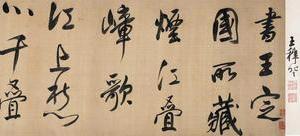 書王定
國所藏
煙江疊
嶂歌
江上愁
心千疊